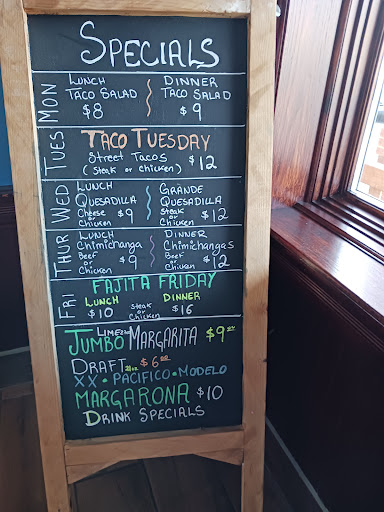 SPECIALS
MON
LUNCH
TACO SALAD
$8
DINNER
TACO SALAD
$9
TUES
TACO TUESDAY
Street Tacos
(steak or chicken)
$12
WED
LUNCH
QUESADILLA
Cheese
or
Chicken
$9
GRANDE
QUESADILLA
Steak
or
Chicken
$12
THUR
LUNCH
Chimichanga
Beef
or
Chicken
$9
DINNER
Chimichangas
Beef
or
Chicken
$12
FRI
FAJITA FRIDAY
LUNCH
$10
Steak
or
Chicken
DINNER
$16
JUMBO LIME MARGARITA $9
DRAFT $6.00
XX • PACIFICO • MODELO
MARGARONA $10
DRINK SPECIALS